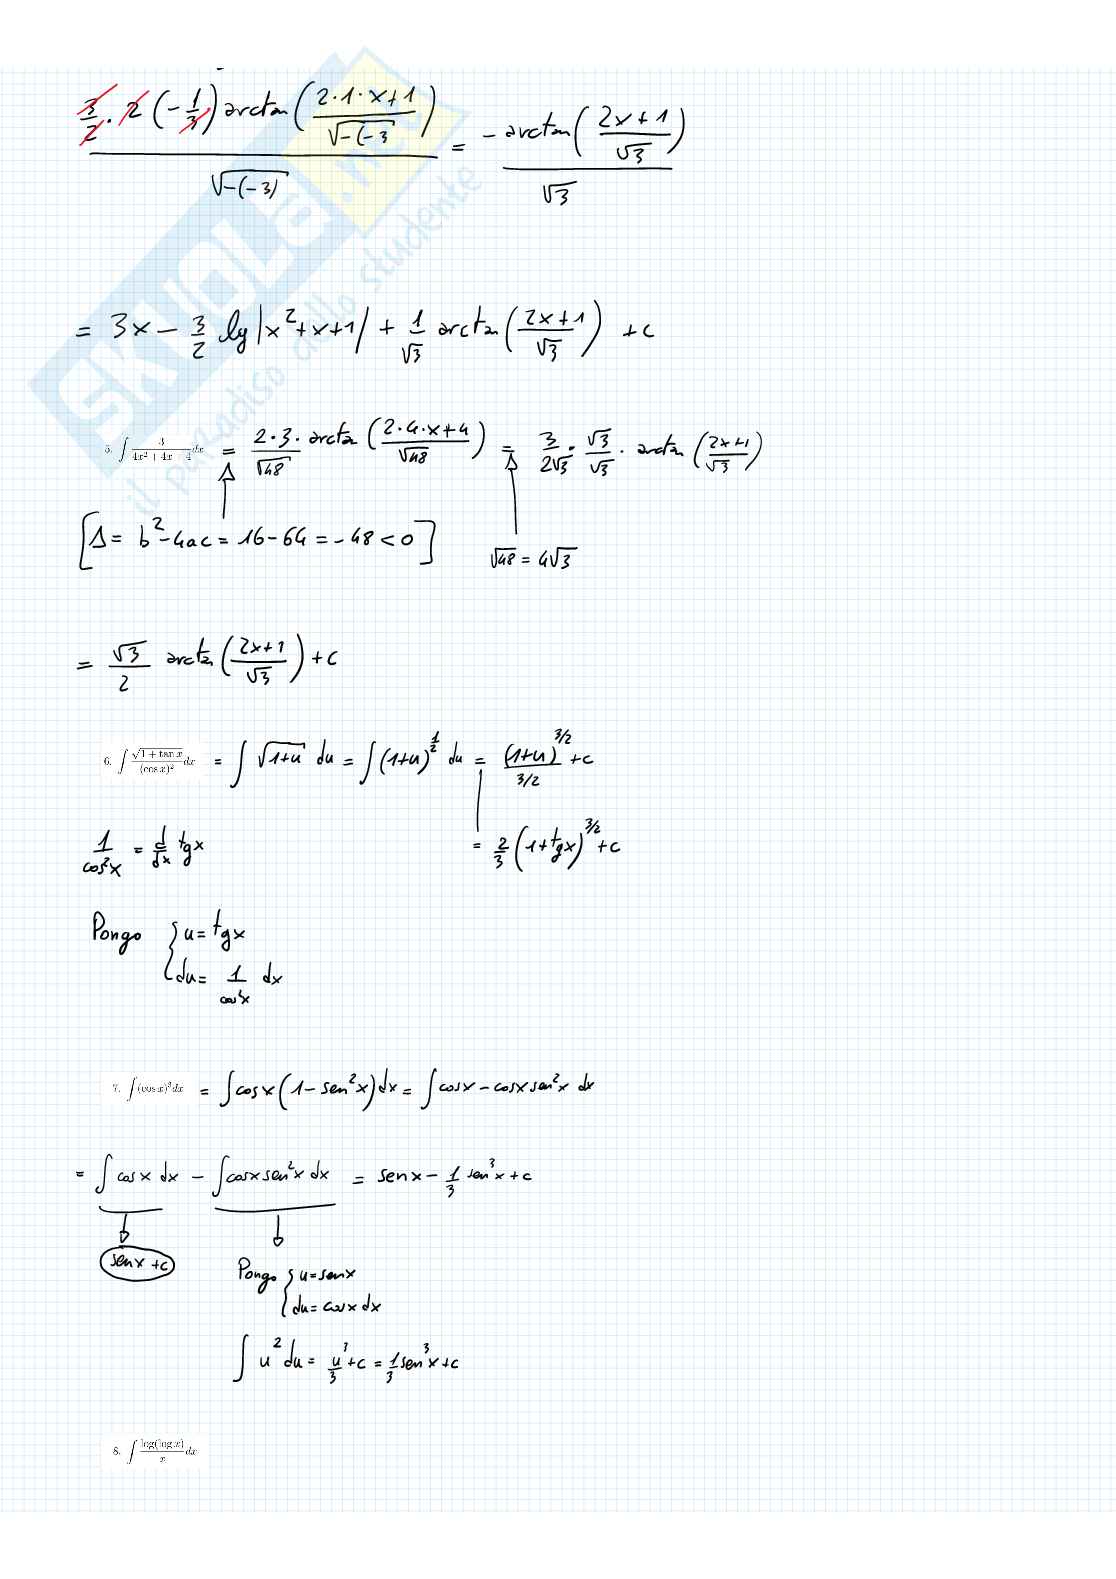 3/2 · 2 (- 1/3) arctan ( (2·1·x+1) / √-(-3 ) / √-(-3) = - arctan ( (2x+1) / √3 ) / √3
SKUOLA.net
il paradiso dello studente
= 3x - 3/2 lg |x²+x+1| + 1/√3 arctan ( (2x+1) / √3 ) + c
5. ∫ 3 / (4x² + 4x + 4) dx = 2·3· / √48 arctan ( (2·4·x+4) / √48 ) = 3 / 2√3 · √3 / √3 · arctan ( (2x+1) / √3 )
[Δ = b²-4ac = 16-64 = -48 < 0]
√48 = 4√3
= √3 / 2 arctan ( (2x+1) / √3 ) + c
6. ∫ √(1 + tan x) / (cos x)² dx = ∫ √1+u du = ∫ (1+u)^1/2 du = (1+u)^3/2 / 3/2 + c
1 / cos²x = d/dx tgx
= 2/3 (1+tgx)^3/2 + c
Pongo { u = tgx
du = 1 / cos²x dx
7. ∫(cos x)³dx = ∫cosx (1 - sen²x) dx = ∫ cosx - cosx sen²x dx
= ∫ cosx dx - ∫cosx sen²x dx = senx - 1/3 sen³x + c
senx + c
Pongo { u = senx
du = cosx dx
∫ u² du = u³/3 + c = 1/3 sen³x + c
8. ∫ log(log x) / x dx